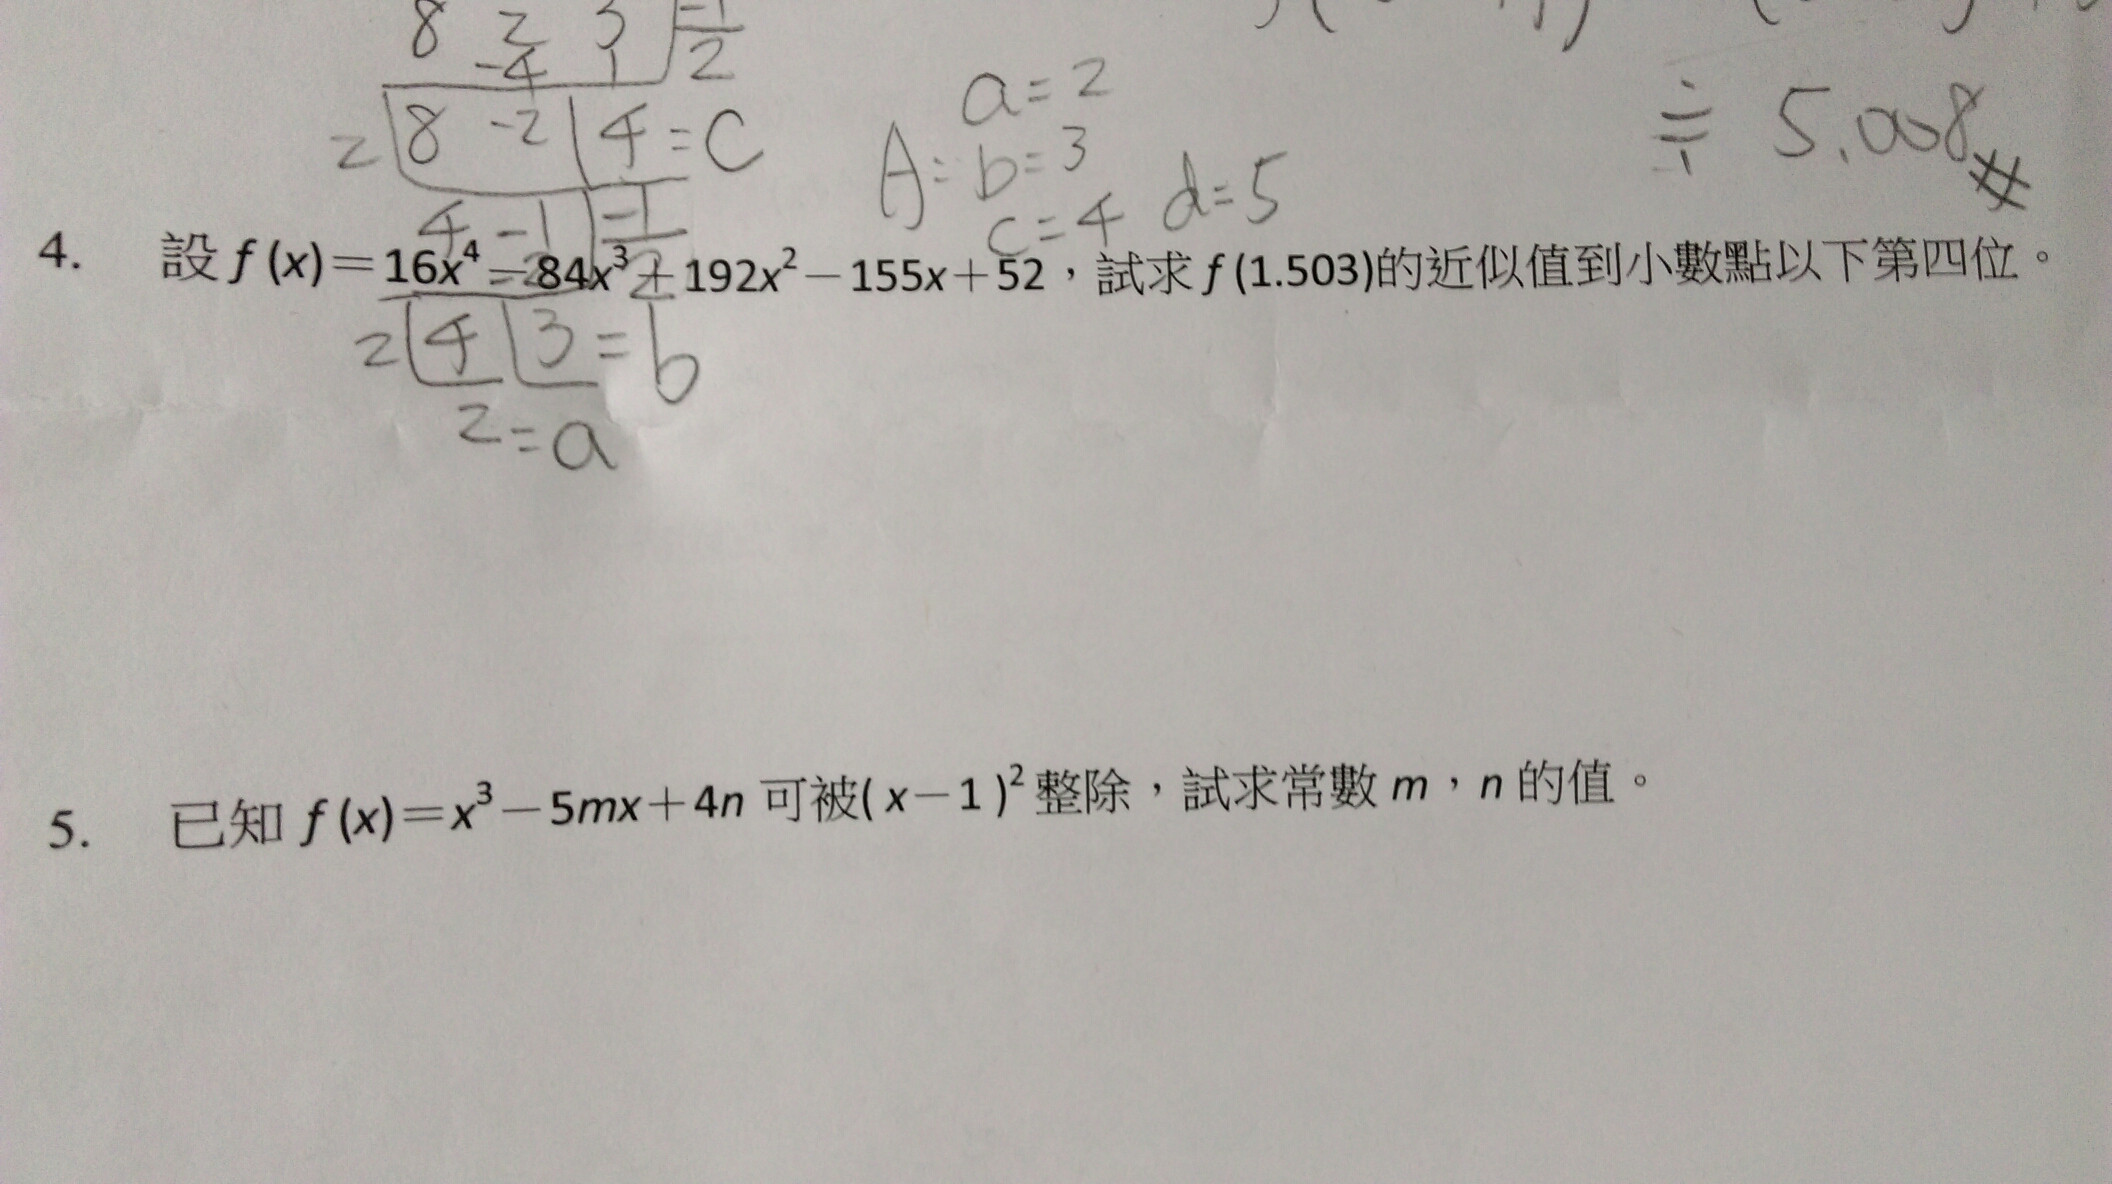 8 2 3 -1/2
-4 1
2 8 -2 4 = C
4 -1 -1/2
2 4 3 = b
2 = a
a = 2
A: b = 3
c = 4 d = 5
≑ 5.008
4. 設 f (x)＝16x⁴－84x³＋192x²－155x＋52，試求 f (1.503)的近似值到小數點以下第四位。
5. 已知 f (x)＝x³－5mx＋4n 可被( x－1 )² 整除，試求常數 m，n 的值。